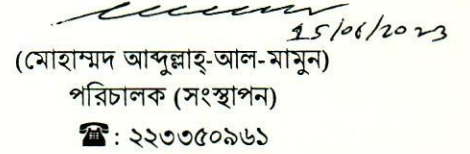 15/06/2023
(মোহাম্মদ আব্দুল্লাহ্-আল-মামুন)
পরিচালক (সংস্থাপন)
☎: ২২৩৩৫০৯৬১